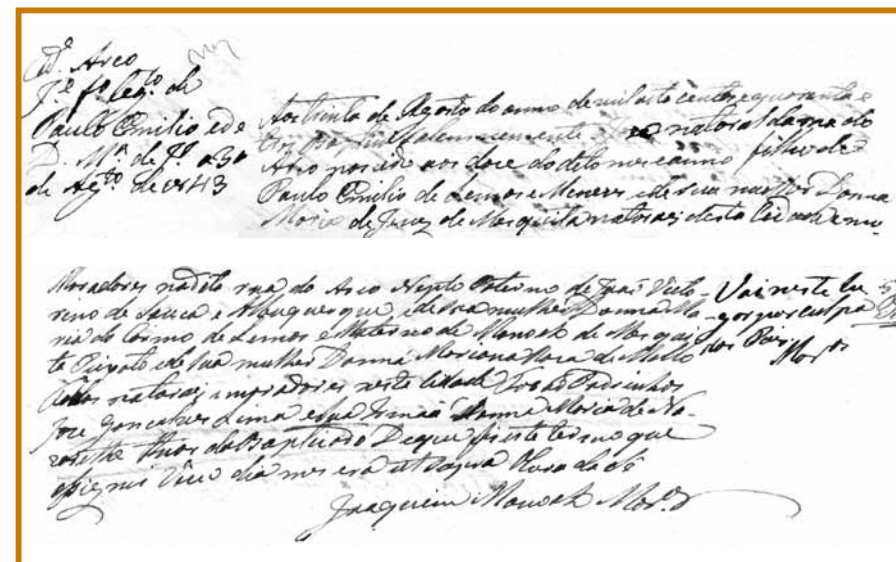 Cid.e Arco
J.e f.o leg.to de
Paulo Emilio e de
D. M.a de J. a 30
de Ag.to de 1843
Aos trinta de Agosto do anno de mil oito centos e quarenta e
tres Baptizei solemnemente José natural da rua do
Arco nascido aos doze do dito mes e anno filho de
Paulo Emilio de Lemos e Menezes e de sua mulher Donna
Maria de Jesus de Mesquita naturaes desta Cidade e mo-
moradores na dita rua do Arco Nepto Paterno de José Victo-
rino de Souza e Albuquerque, e de sua mulher Donna Ma-
ria do Carmo de Lemos e Materno de Manoel de Mesqui-
ta Pimentel e de sua mulher Donna Marianna Roza de Mello
todos naturaes e moradores nesta Cidade Forão Padrinhos
José Gonçalves Lima e sua Irmaã Donna Maria de Na-
zareth Thios do Baptizado De que fiz este termo que
assignei Vizeu dia mes era ut supra
Joaquim Manoel Mor.a
Vai neste lu-
gar por culpa
dos Pais
Mor.a